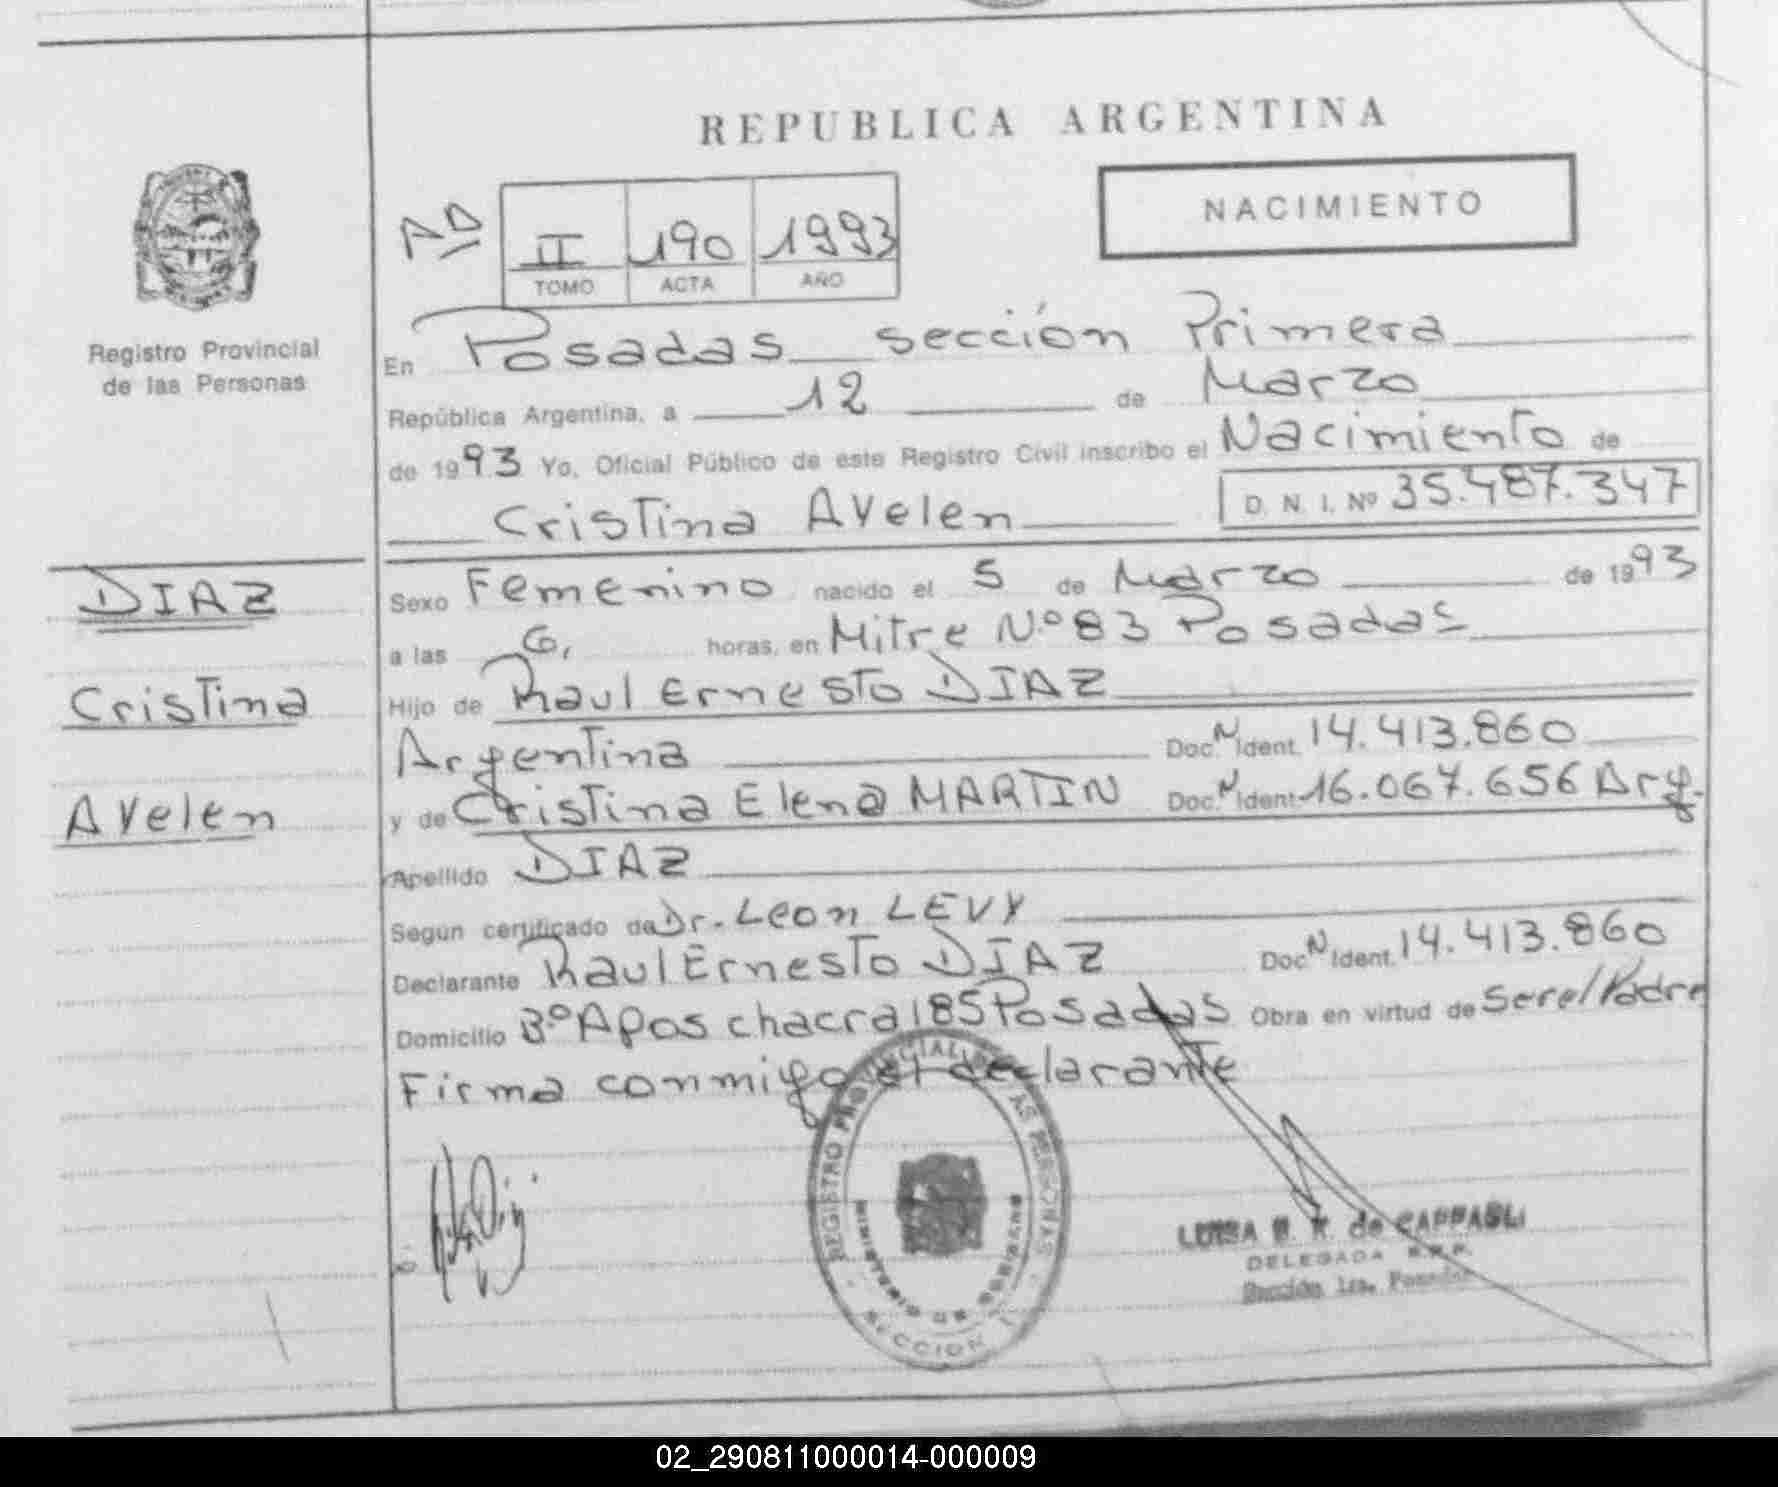 REPUBLICA ARGENTINA
NACIMIENTO
AD II 190 1993
TOMO ACTA AÑO
Registro Provincial
de las Personas
En Posadas sección Primera
República Argentina, a 12 de Marzo
de 1993 Yo, Oficial Público de este Registro Civil inscribo el Nacimiento de
Cristina AYelen D. N. I. Nº 35.487.347
DIAZ
Cristina
AYelen
Sexo Femenino nacido el 5 de Marzo de 1993
a las 6, horas, en Mitre N.º 83 Posadas
Hijo de Raul Ernesto DIAZ
Argentina Doc. N Ident. 14.413.860
y de Cristina Elena MARTIN Doc. N Ident. 16.067.656 Arg.
Apellido DIAZ
Según certificado de Dr. Leon LEVY
Declarante Raul Ernesto DIAZ Doc. N Ident. 14.413.860
Domicilio 3.º Apos chacra 185 Posadas Obra en virtud de ser el Padre
Firma conmigo el declarante
REGISTRO PROVINCIAL DE LAS PERSONAS
MINISTERIO DE GOBIERNO
SECCION 1
LUISA de CAPPAGLI
DELEGADA R.P.P.
Sección 1ra. Posadas
02_290811000014-000009